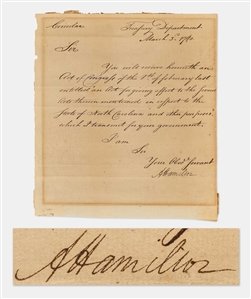 Circular
Treasury Department
March 5th 1790
Sir
You will receive herewith an
Act of Congress of the 8th of february last
entitled an Act for giving effect to the
Acts therein mentioned in respect to the
State of North Carolina and other purposes,
which I transmit for your government.
I am
Sir
Your Obed Servant
A Hamilton
A Hamilton